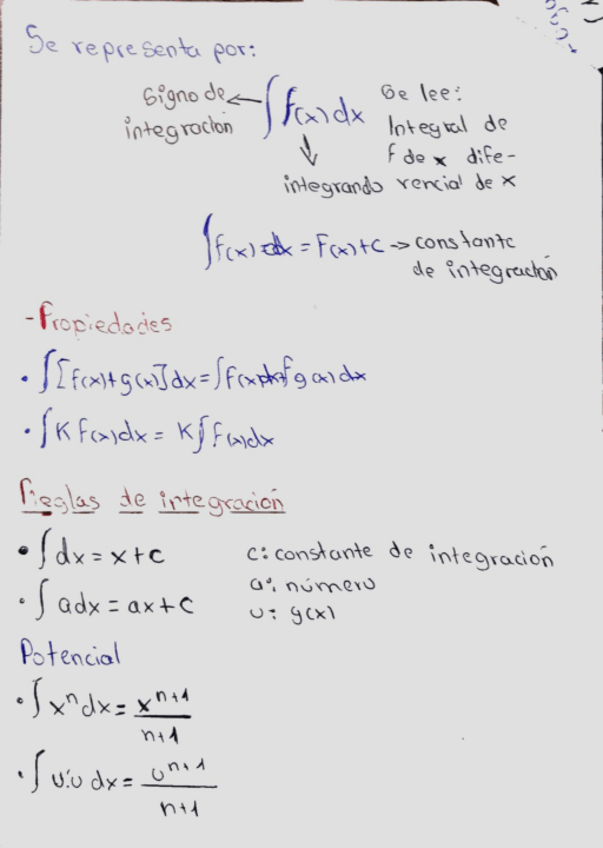 Se representa por:
Signo de ← ∫ f(x) dx Se lee:
integración Integral de
↓ f de x dife-
integrando rencial de x
∫ f(x) dx = F(x)+c → constante
de integración
- Propiedades
• ∫[f(x)+g(x)]dx = ∫f(x)dx+∫g(x)dx
• ∫K f(x)dx = K∫f(x)dx
Reglas de integración
• ∫dx = x+c c: constante de integración
• ∫adx = ax+c a: número
u: g(x)
Potencial
• ∫xⁿdx = xⁿ⁺¹
n+1
• ∫ u'.u dx = uⁿ⁺¹
n+1